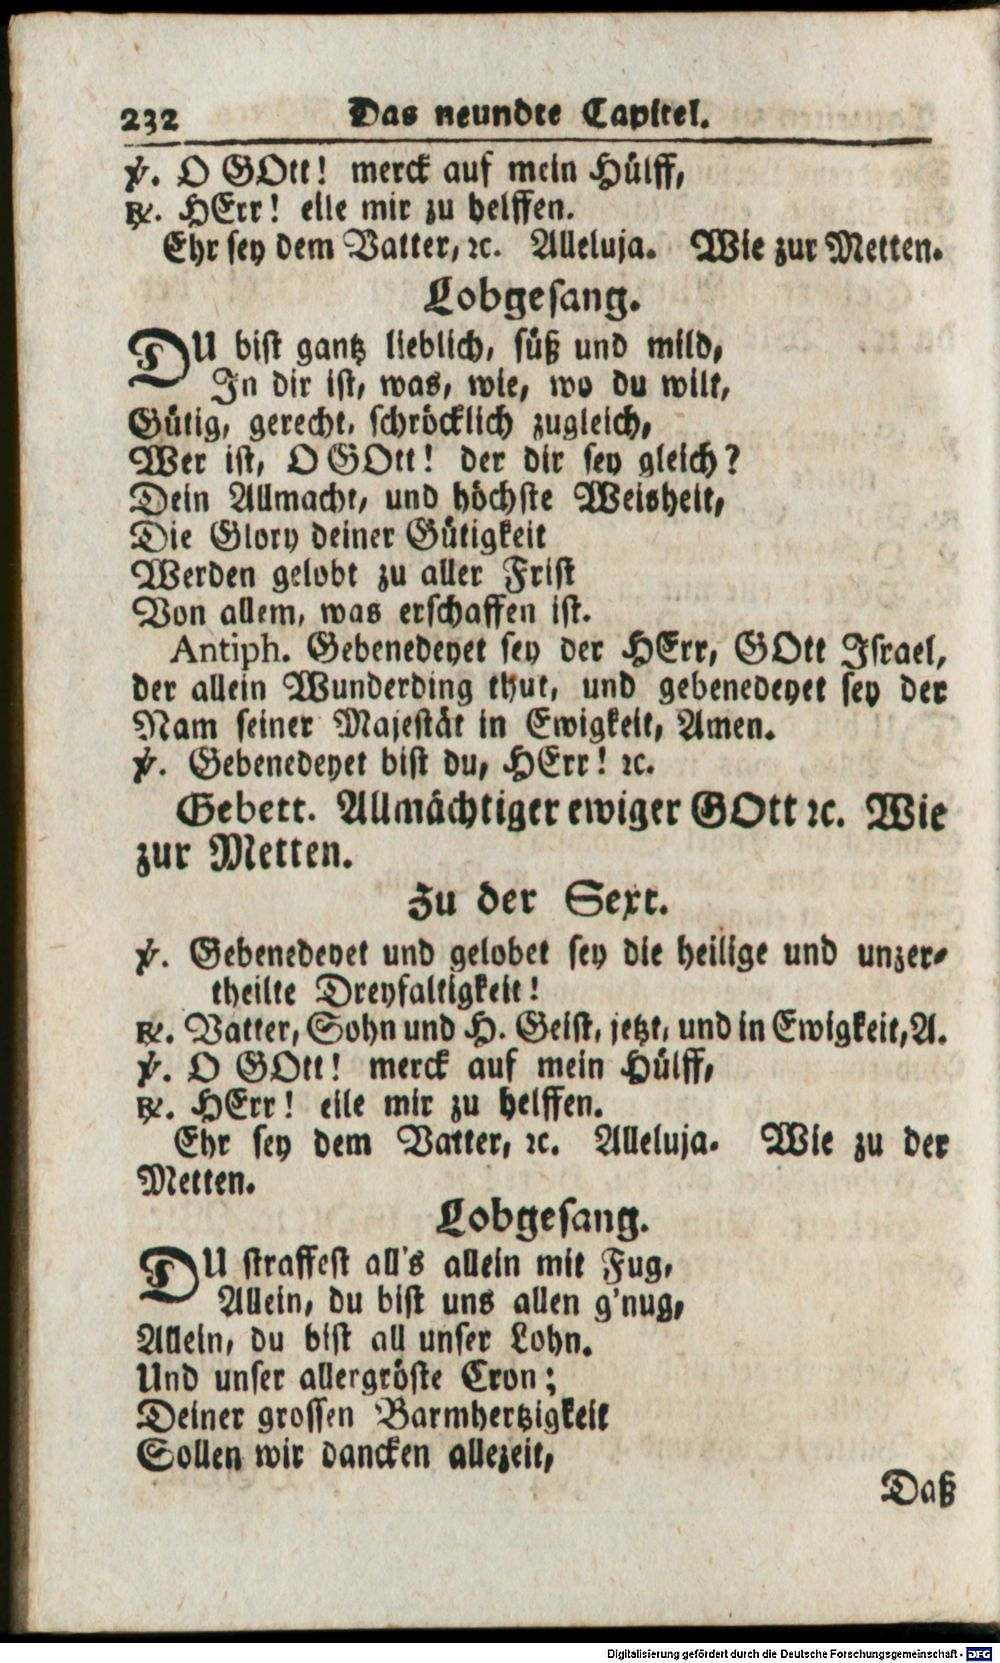 232 Das neundte Capitel.
℣. O GOtt! merck auf mein Hülff,
℟. HErr! eile mir zu helffen.
Ehr sey dem Vatter, ꝛc. Alleluja. Wie zur Metten.
Lobgesang.
DU bist gantz lieblich, süß und mild,
In dir ist, was, wie, wo du wilt,
Gütig, gerecht, schröcklich zugleich,
Wer ist, O GOtt! der dir sey gleich?
Dein Allmacht, und höchste Weisheit,
Die Glory deiner Gütigkeit
Werden gelobt zu aller Frist
Von allem, was erschaffen ist.
Antiph. Gebenedeyet sey der HErr, GOtt Israel,
der allein Wunderding thut, und gebenedeyet sey der
Nam seiner Majestät in Ewigkeit, Amen.
℣. Gebenedeyet bist du, HErr! ꝛc.
Gebett. Allmächtiger ewiger GOtt ꝛc. Wie
zur Metten.
Zu der Sext.
℣. Gebenedeyet und gelobet sey die heilige und unzer-
theilte Dreyfaltigkeit!
℟. Vatter, Sohn und H. Geist, jetzt, und in Ewigkeit, A.
℣. O GOtt! merck auf mein Hülff,
℟. HErr! eile mir zu helffen.
Ehr sey dem Vatter, ꝛc. Alleluja. Wie zu der
Metten.
Lobgesang.
DU straffest all's allein mit Fug,
Allein, du bist uns allen g'nug,
Allein, du bist all unser Lohn.
Und unser allergröste Cron;
Deiner grossen Barmhertzigkeit
Sollen wir dancken allezeit,
Daß
Digitalisierung gefördert durch die Deutsche Forschungsgemeinschaft - DFG